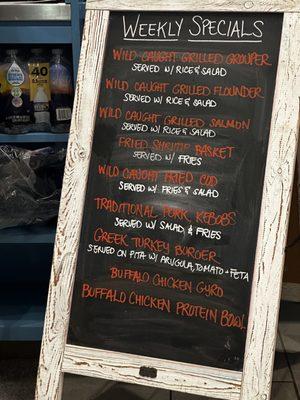 WEEKLY SPECIALS
WILD CAUGHT GRILLED GROUPER
SERVED W/ RICE & SALAD
WILD CAUGHT GRILLED FLOUNDER
SERVED W/ RICE & SALAD
WILD CAUGHT GRILLED SALMON
SERVED W/ RICE & SALAD
FRIED SHRIMP BASKET
SERVED W/ FRIES
WILD CAUGHT FRIED COD
SERVED W/ FRIES & SALAD
TRADITIONAL PORK KEBOBS
SERVED W/ SALAD & FRIES
GREEK TURKEY BURGER
SERVED ON PITA W/ ARUGULA, TOMATO + FETA
BUFFALO CHICKEN GYRO
BUFFALO CHICKEN PROTEIN BOWL
40